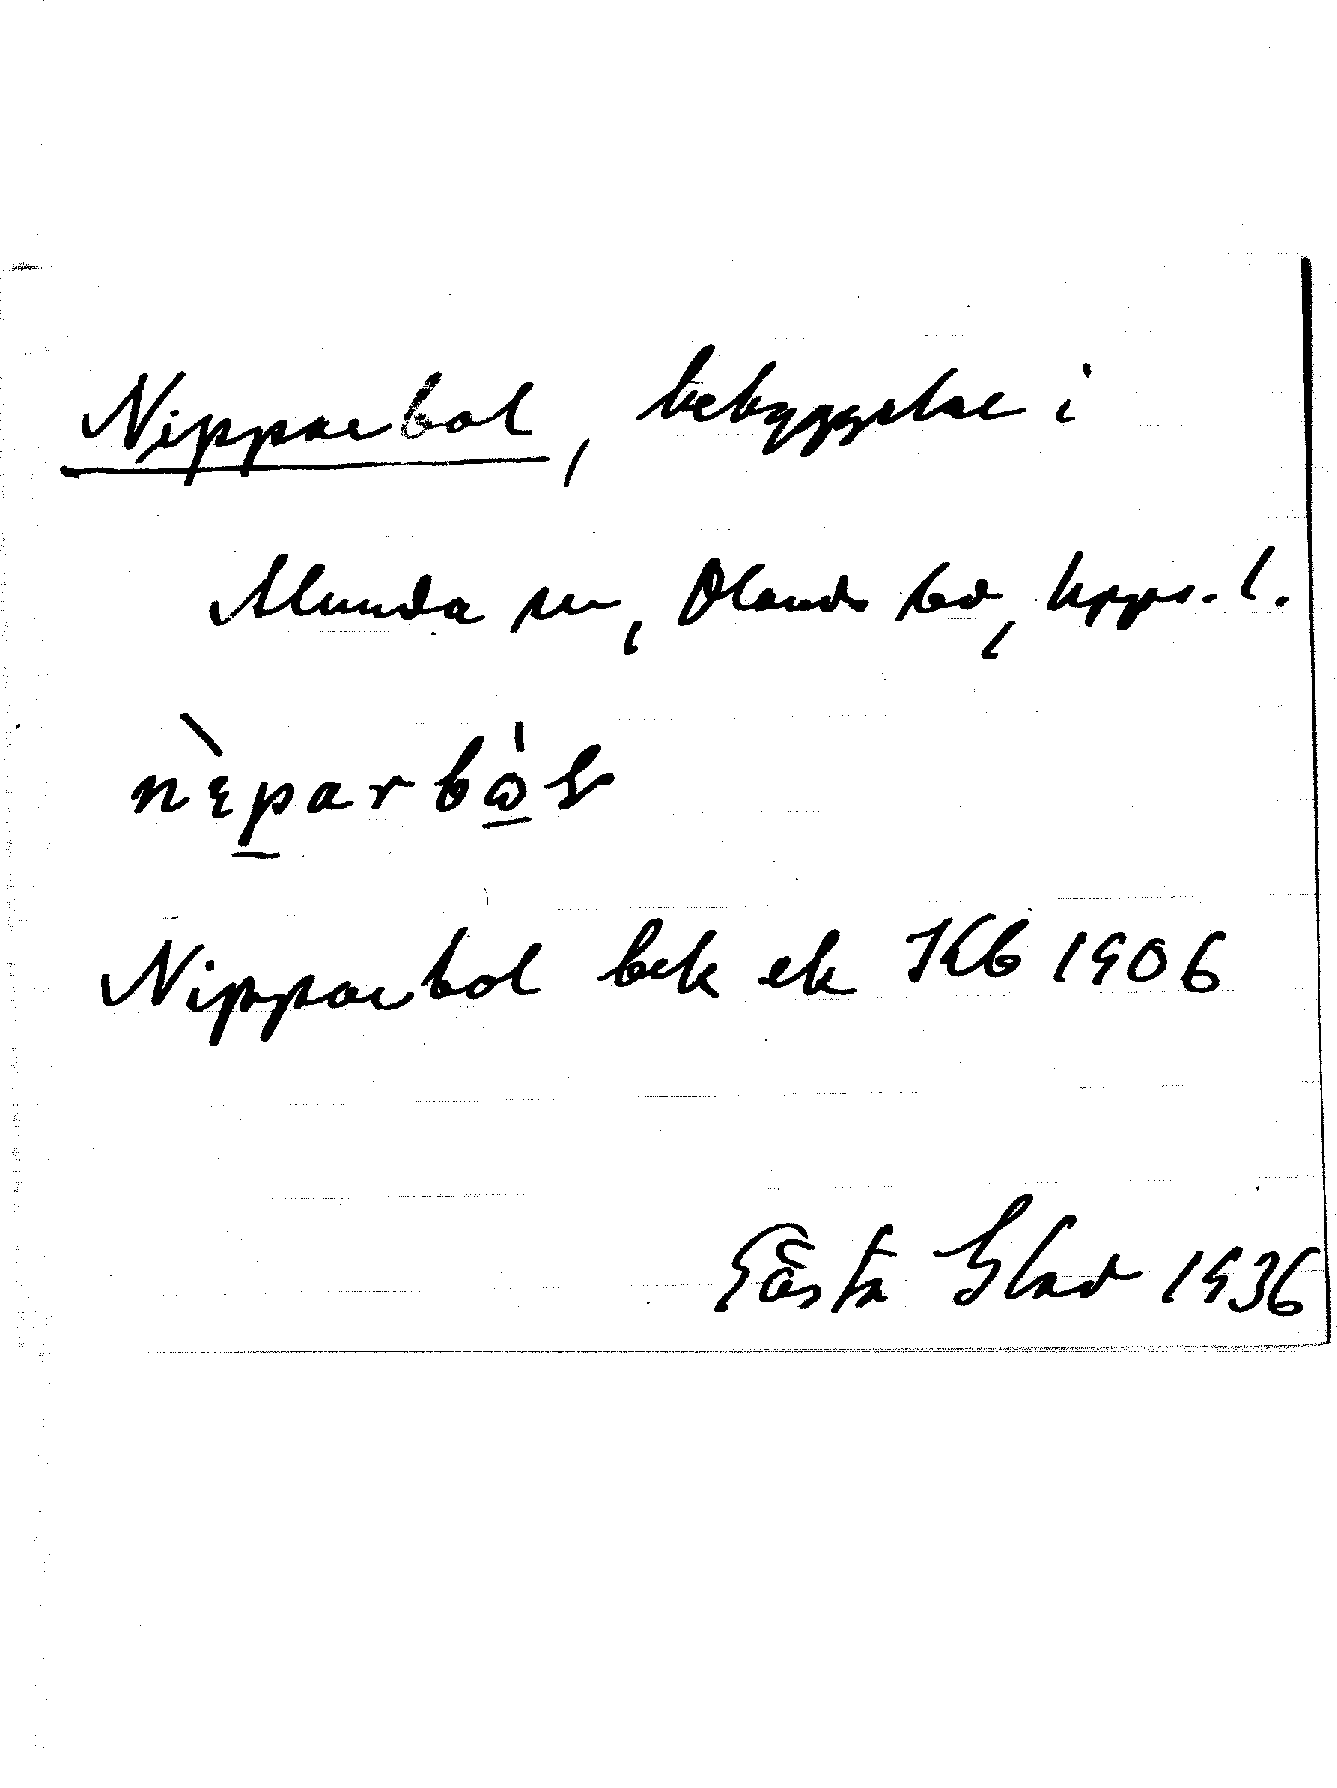 Nipparbol, bebyggelse i
Alunda sn, Olands hd, Upps. l.
Nipparbol bek ek Kb 1906
Gösta Blad 1936